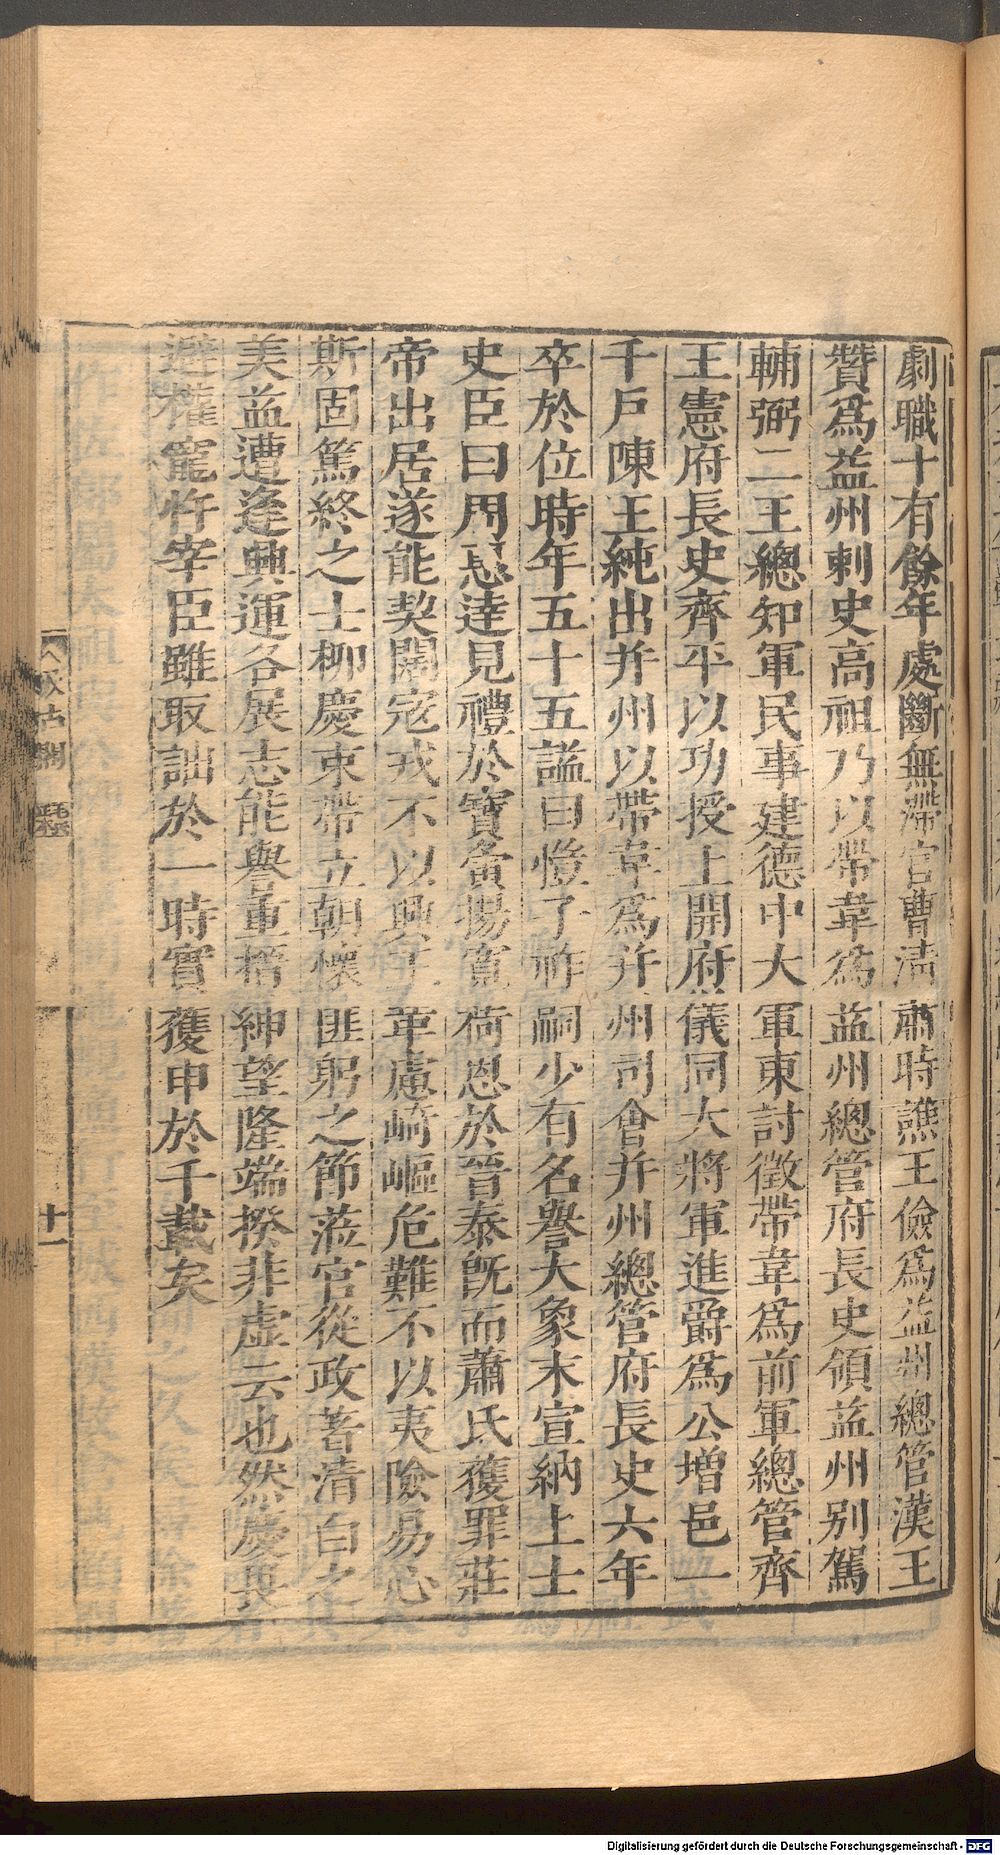 劇職十有餘年處斷無滯官曹清肅時譙王儉爲益州總管漢王
贊爲益州刺史高祖乃以帶韋爲益州總管府長史領益州別駕
輔弼二王總知軍民事建德中大軍東討徵帶韋爲前軍總管齊
王憲府長史齊平以功授上開府儀同大將軍進爵爲公增邑一
千戶陳王純出并州以帶韋爲并州司會并州總管府長史六年
卒於位時年五十五謚曰愷子祚嗣少有名譽大象末宣納上士
史臣曰周惠達見禮於寶夤楊寬荷恩於晉泰旣而蕭氏獲罪莊
帝出居遂能契闊寇戎不以興亡革慮崎嶇危難不以夷險易心
斯固篤終之士柳慶束帶立朝懷匪躬之節莅官從政著清白之
美並遭逢興運各展志能譽重搢紳望隆端揆非虛云也然慶畏
避權寵忤宰臣雖取詘於一時實獲申於千載矣
汲古閣
十一
Digitalisierung gefördert durch die Deutsche Forschungsgemeinschaft - DFG